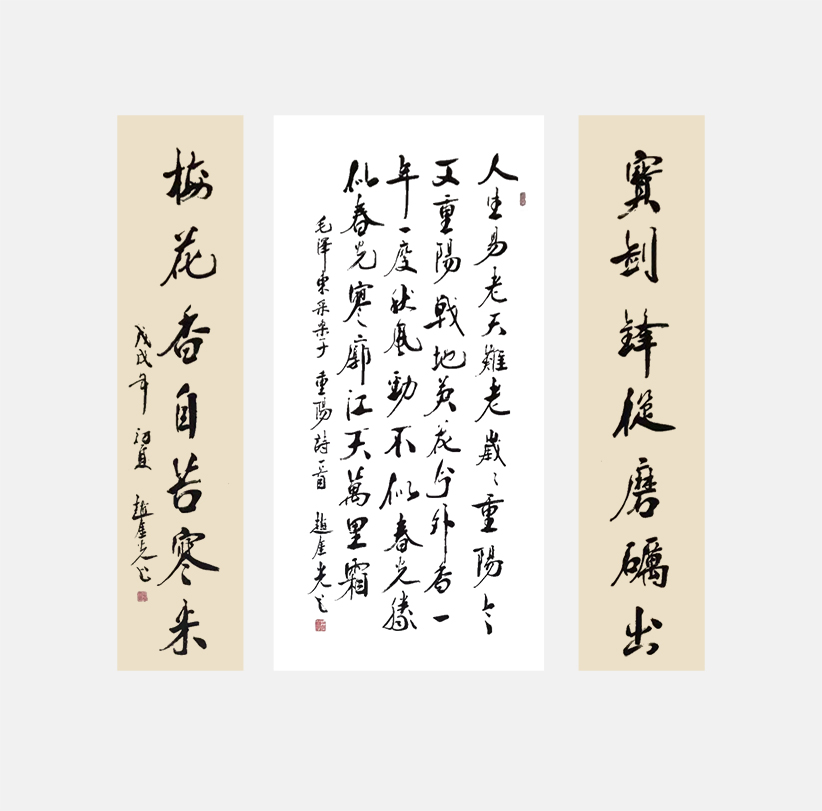 寶劍鋒從磨礪出
人生易老天難老歲〻重陽今
又重陽戰地黃花分外香一
年一度秋風勁不似春光勝
似春光寥廓江天萬里霜
毛澤東采桑子 重陽詩一首 趙奎光书
梅花香自苦寒来
戊戌年 初夏 趙奎光书